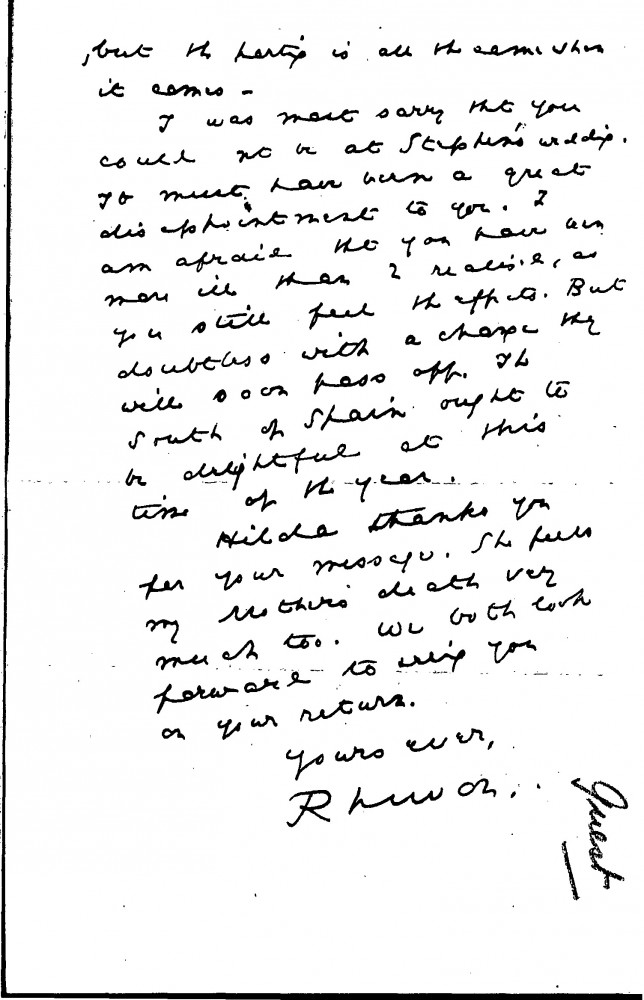 , but the parting is all the same when
it comes –
I was most sorry that you
could not be at Stephen's wedding.
It must have been a great
disappointment to you. I
am afraid that you have been
more ill than I realise, as
you still feel the effects. But
doubtless with a change they
will soon pass off. The
South of Spain ought to
be delightful at this
time of the year.
Hilda thanks you
for your message. She feels
my Mother's death very
much too. We both look
forward to seeing you
on your return.
Yours ever,
Guest